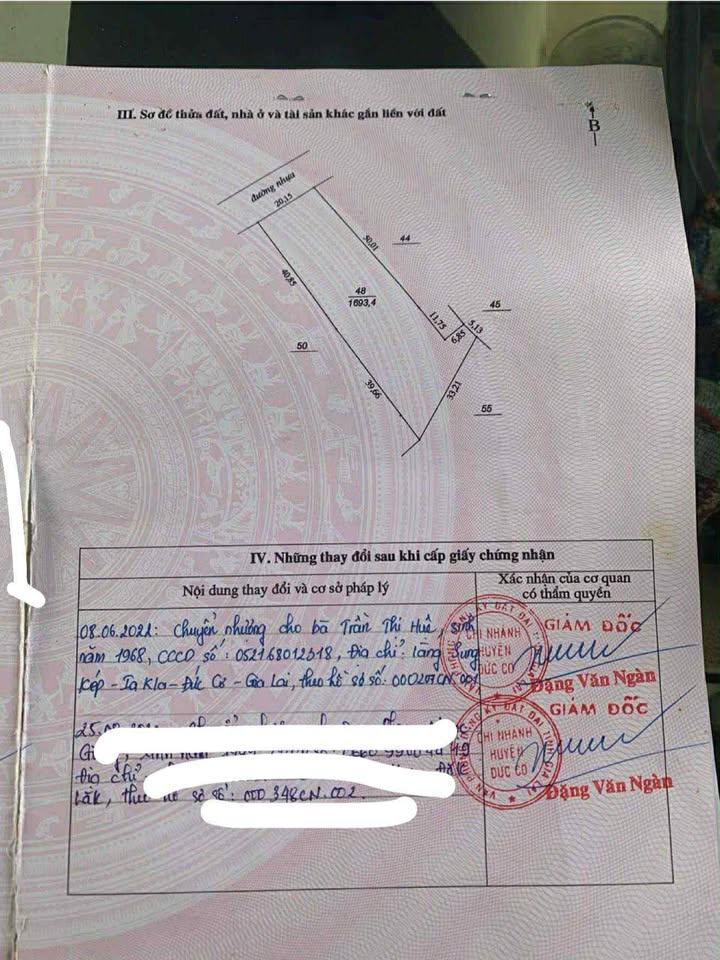 III. Sơ đồ thửa đất, nhà ở và tài sản khác gắn liền với đất
B
đường nhựa
20,15
50,01
44
40,85
48
1693,4
11,75
45
5,13
6,85
50
39,66
33,21
55
IV. Những thay đổi sau khi cấp giấy chứng nhận
Nội dung thay đổi và cơ sở pháp lý
Xác nhận của cơ quan
có thẩm quyền
08.06.2021: Chuyển nhượng cho bà Trần Thị Huê, sinh
năm 1968, CCCD số: 052168012518, Địa chỉ: Làng Sung
Kép - Ia Kla - Đức Cơ - Gia Lai, theo hồ sơ số: 000207.CN.001
GIÁM ĐỐC
CHI NHÁNH
HUYỆN
ĐỨC CƠ
Đặng Văn Ngàn
25.
Địa chỉ
Lăk, hồ sơ số: 000348CN.002.
GIÁM ĐỐC
CHI NHÁNH
HUYỆN
ĐỨC CƠ
Đặng Văn Ngàn